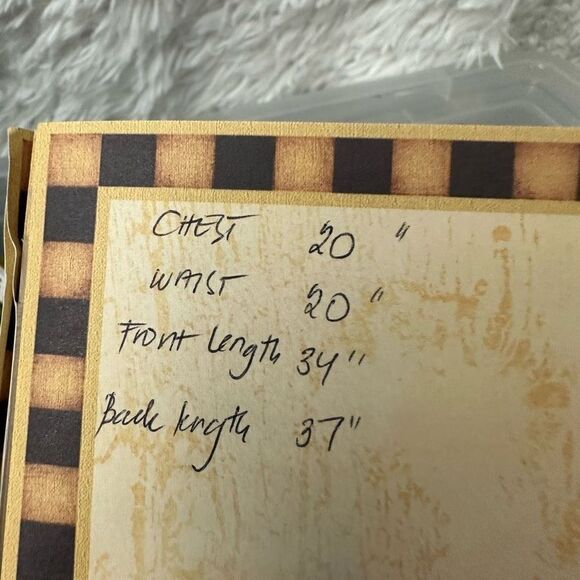 CHEST 20 "
WAIST 20 "
Front length 34"
Back length 37"